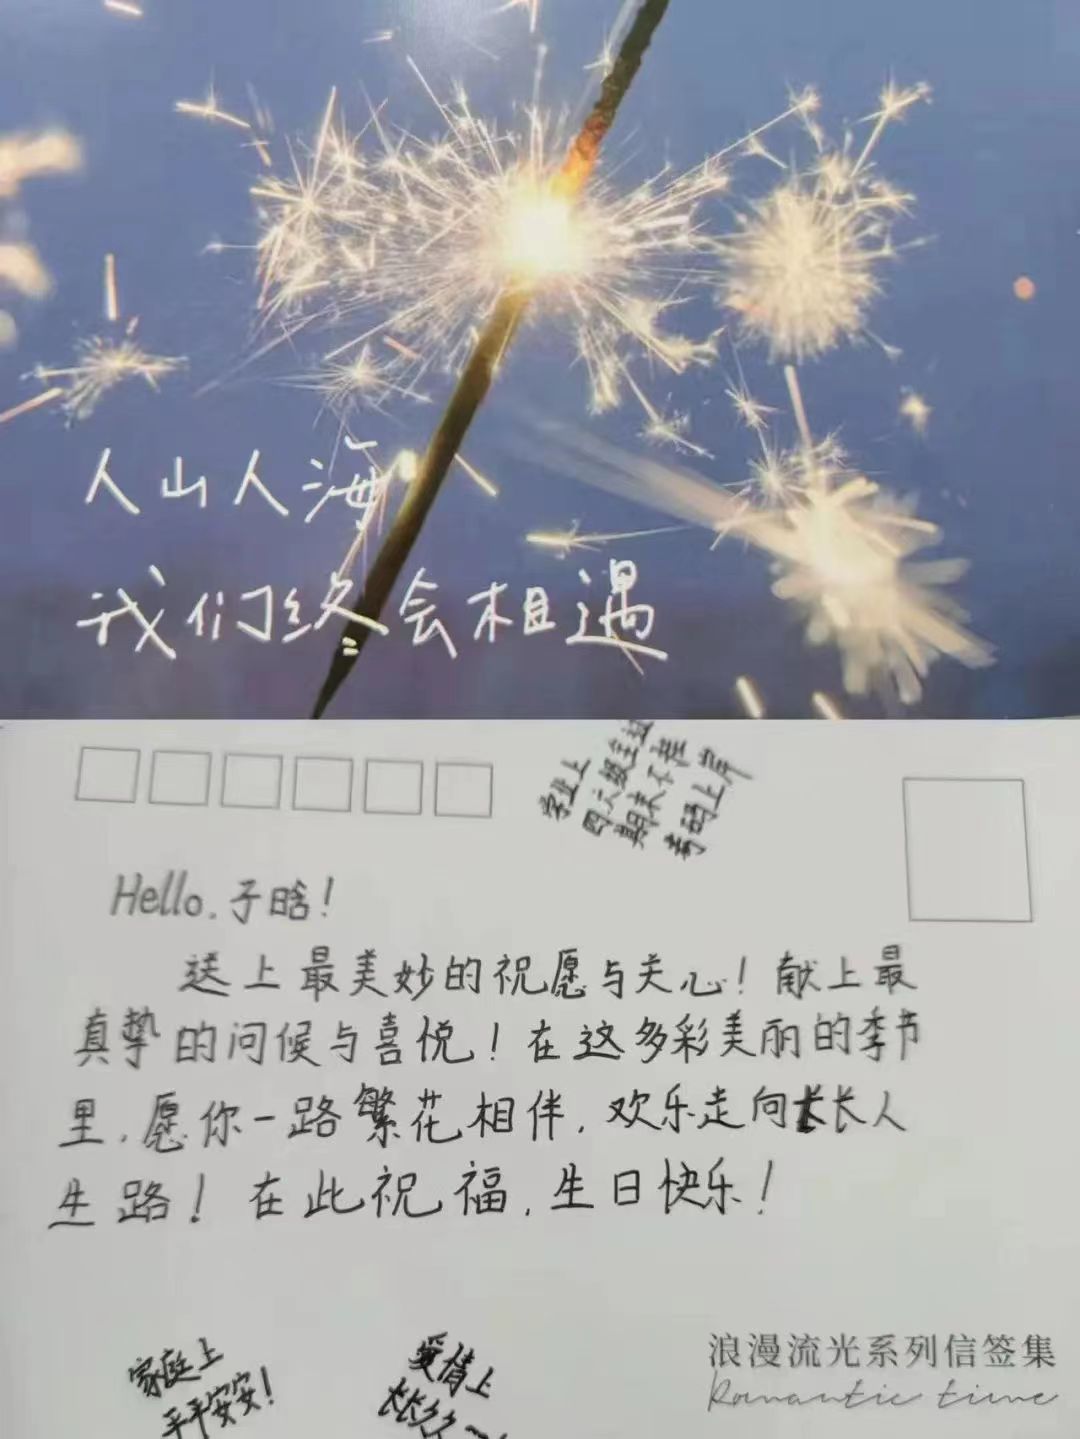 人山人海
我们终会相遇
学业上
四六级全过
期末不挂
考研上岸
Hello,子晗!
送上最美妙的祝愿与关心!献上最
真挚的问候与喜悦!在这多彩美丽的季节
里,愿你一路繁花相伴,欢乐走向长长人
生路!在此祝福,生日快乐!
家庭上
平平安安!
爱情上
长长久久
浪漫流光系列信签集
Romantic time